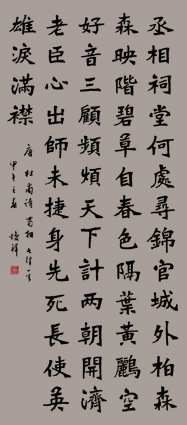 丞相祠堂何處尋錦官城外柏森
森映階碧草自春色隔葉黃鸝空
好音三顧頻煩天下計两朝開濟
老臣心出師未捷身先死長使英
雄淚滿襟
唐杜甫詩蜀相七律一首
甲午之春